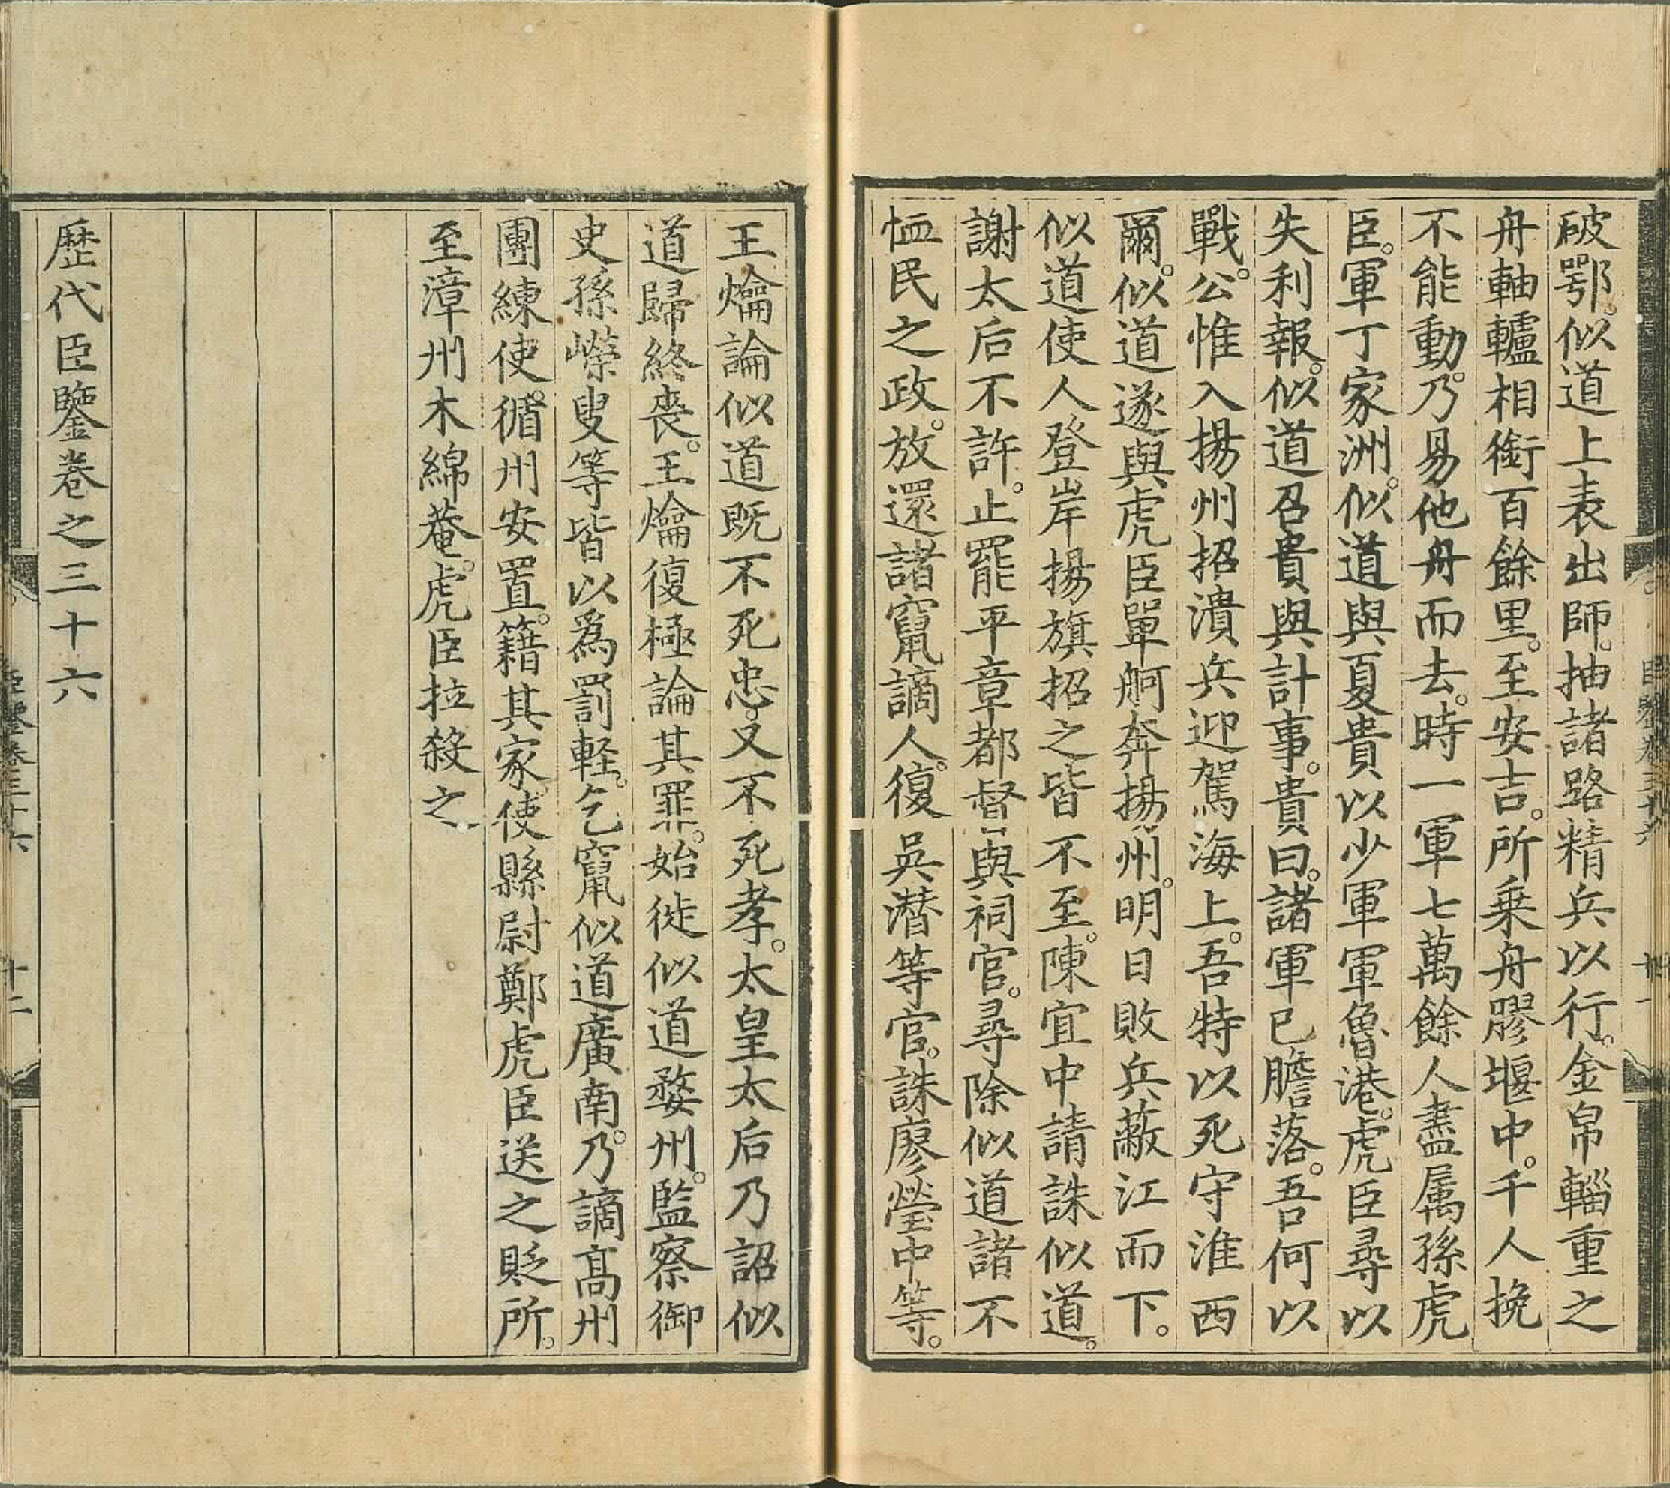 破鄂。似道上表出師。抽諸路精兵以行。金帛輜重之
舟軸轤相銜百餘里。至安吉。所乗舟膠堰中。千人挽
不能動。乃易他舟而去。時一軍七萬餘人盡属孫虎
臣。軍丁家洲。似道與夏貴以少軍軍魯港。虎臣尋以
失利報。似道召貴與計事。貴曰。諸軍已膽落。吾何以
戰。公惟入揚州招潰兵迎駕海上。吾特以死守淮西
爾。似道遂與虎臣單舸奔揚州。明日敗兵蔽江而下。
似道使人登岸揚旗招之皆不至。陳宜中請誅似道。
謝太后不許。止罷平章都督與祠官。尋除似道諸不
恤民之政。放還諸竄謫人。復吳潛等官。誅廖瑩中等。
王爚論似道既不死忠。又不死孝。太皇太后乃詔似
道歸終喪。王爚復極論其罪。始徙似道婺州。監察御
史孫嶸叟等皆以為罰軽。乞竄似道廣南。乃謫髙州
團練使。循州安置。籍其家。使縣尉鄭虎臣送之貶所。
至漳州木綿菴。虎臣拉殺之
歷代臣鑒卷之三十六
臣鑒卷三十六
十二